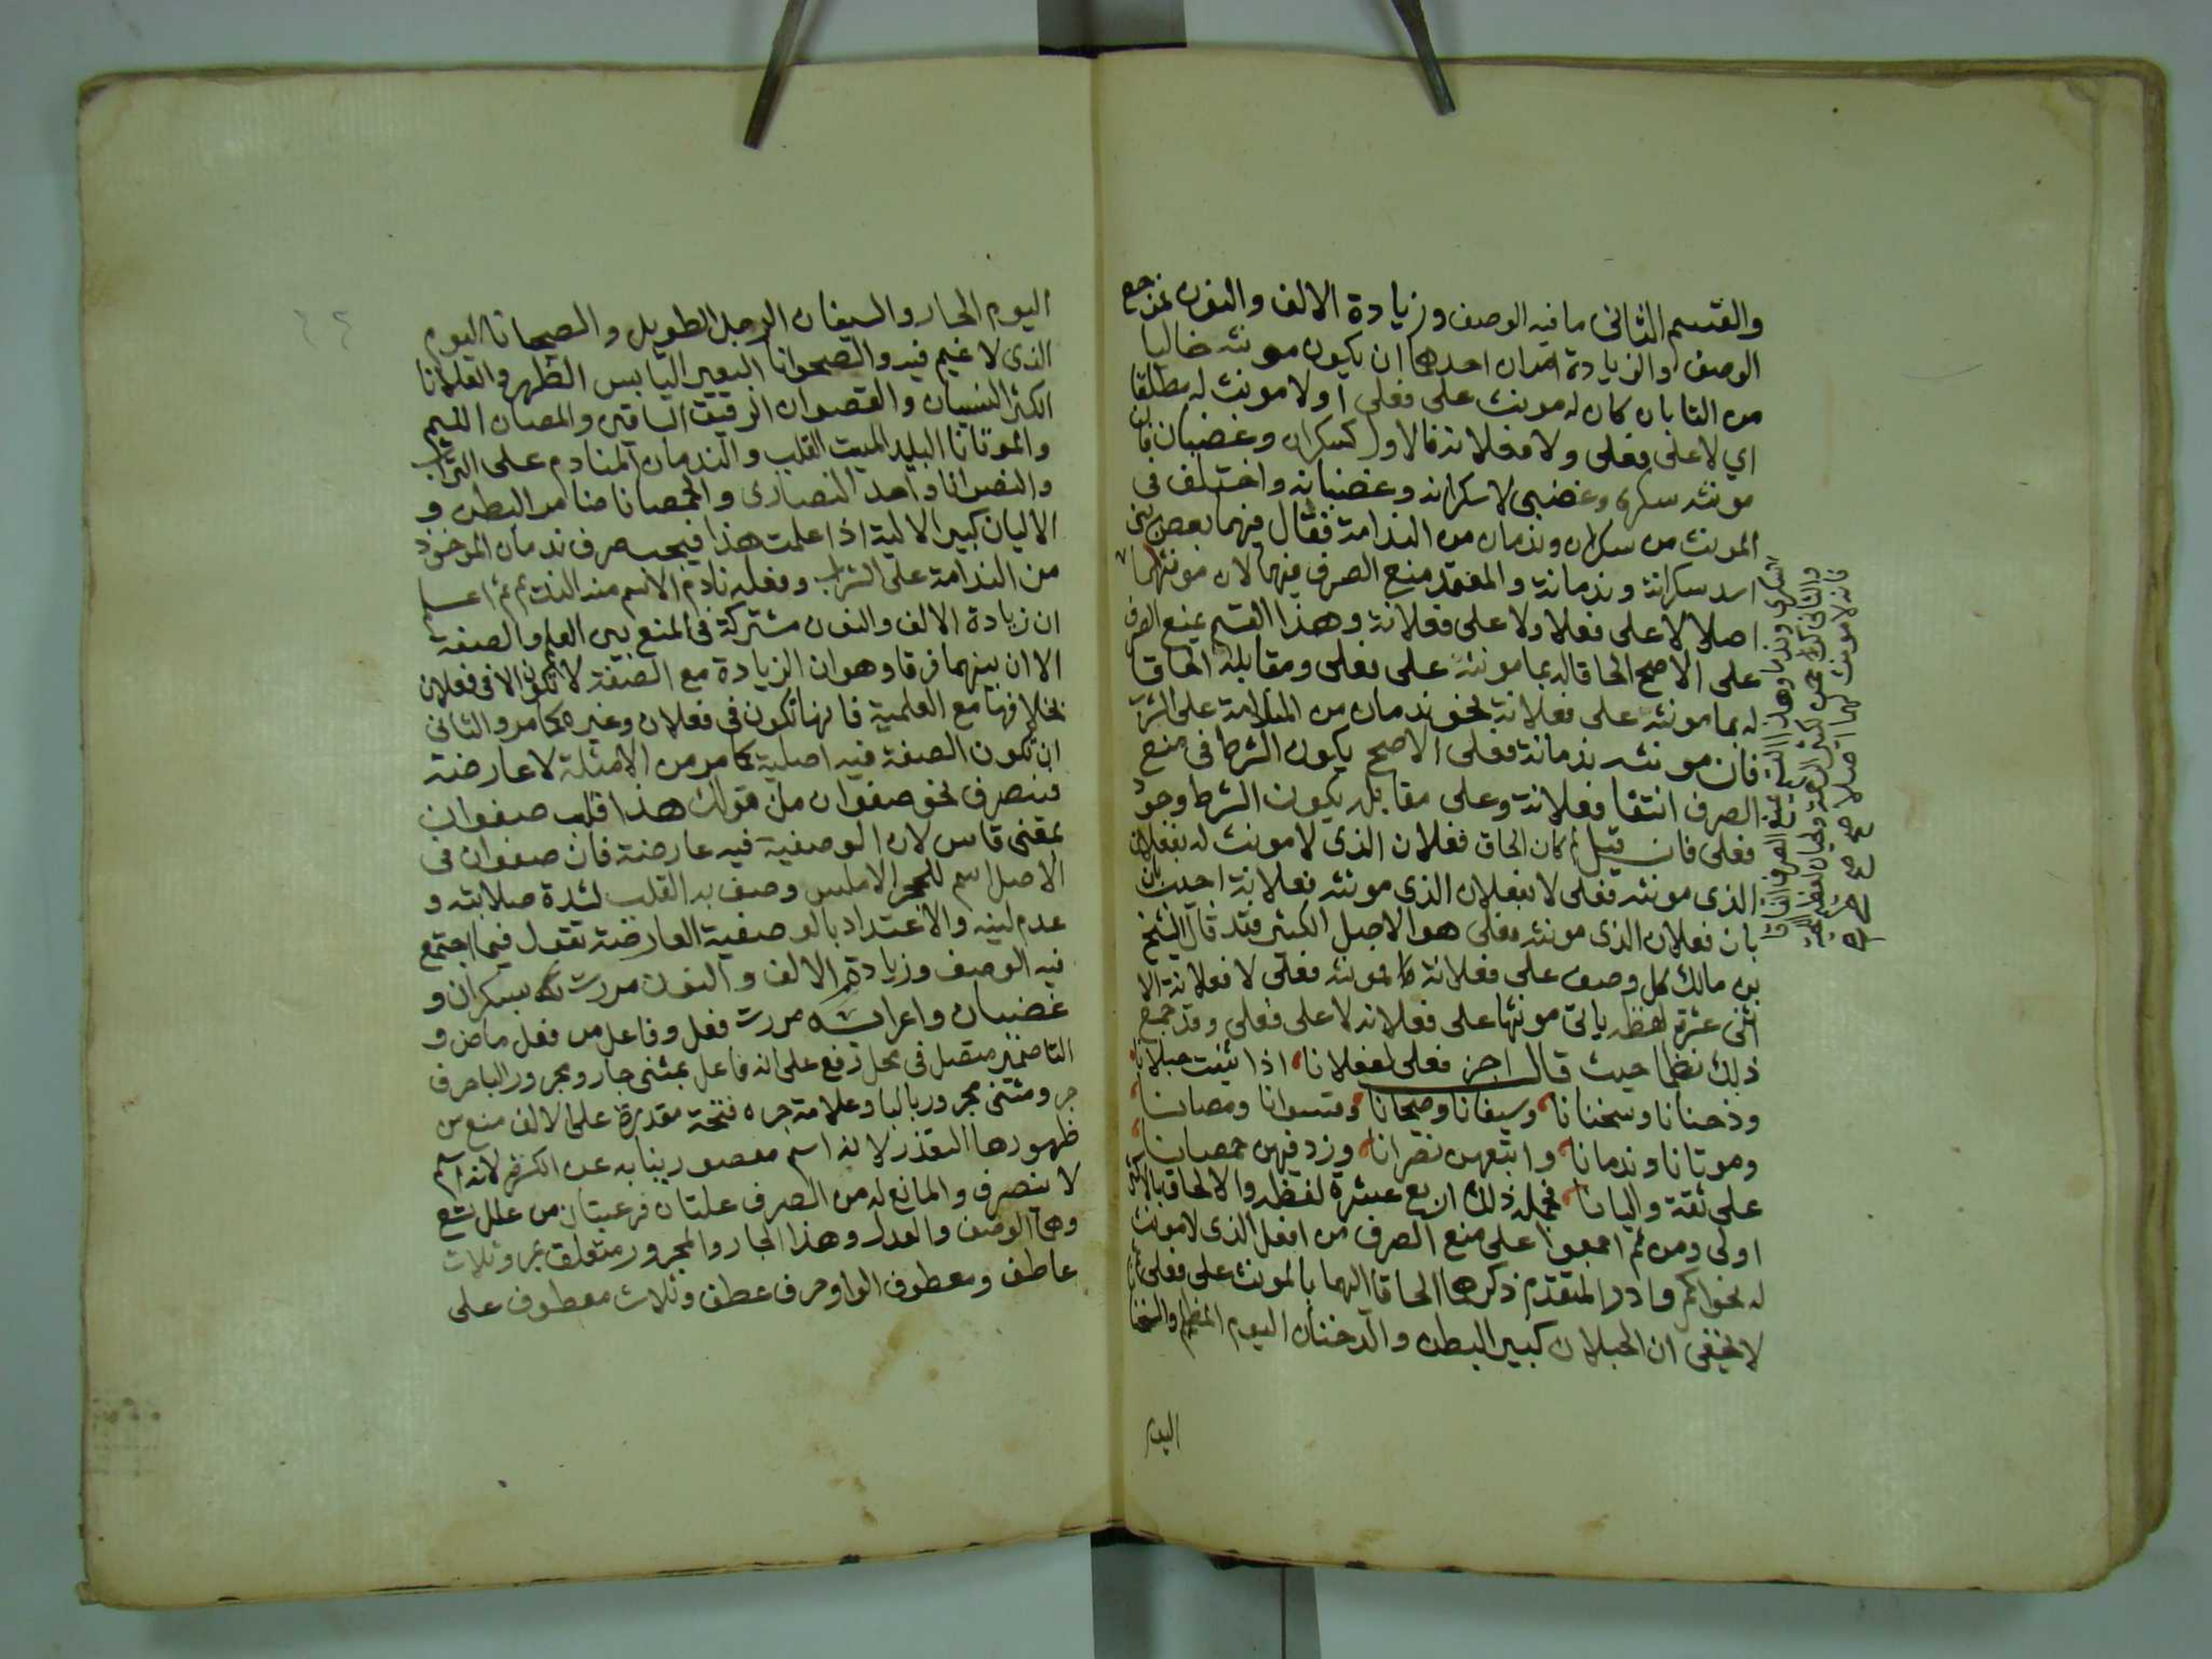 والقسم الثاني ما فيه الوصف وزيادة الالف والنون نحو جمع
الوصف والزيادة امران احدهما ان يكون مونثه خاليا
من التا بان كان له مونث على فعلى او لا مونث له مطلقا
اي لا على فعلى ولا فعلانه فالاول كسكران وغضبان فان
مونثه سكرى وغضبى لا سكرانه وغضبانه واختلف في
المونث من سكران وندمان من الندامة فقال فيهما بعض بني
اسد سكرانة وندمانة والمعتمد منع الصرف فيهما لان مونثهما
اصلا لا على فعلا ولا على فعلانة وهذا القسم يمنع الصرف
على الاصح الحاقا له بما مونثه على فعلى ومقابله الحاقا
له بما مونثه على فعلانة نحو ندمان من المنادمة على الشرب
فان مونثه ندمانة فعلى الاصح يكون الشرط في منع
الصرف انتفا فعلانة وعلى مقابله يكون الشرط وجود
فعلى فان قيل لم كان الحاق فعلان الذي لا مونث له بفعلان
الذي مونثه فعلى لا بفعلان الذي مونثه فعلانة اجيب بان
بان فعلان الذي مونثه فعلى هو الاصل الكثير فقد قال الشيخ
بن مالك كل وصف على فعلانة فالمونثه فعلى لا فعلانة الا
اثنى عشرة لفظه ياتي مونثها على فعلانه لا على فعلى وقد جمع
ذلك نظما حيث قال اجز فعلى لفعلانا اذا ثنيت حبلانا
ودخنانا وسخنانا وسيفانا وصحيانا وقشوانا ومصانا
وموتانا وندمانا واتبعهن نصرانا وزد فيهن خمصانا
على ثقة واليانا فجملة ذلك اربع عشرة لفظه والالحاق بالاكثر
اولى ومن ثم اجمعوا على منع الصرف من افعل الذي لا مونث
له نحو اكمر وادر المتقدم ذكرهما الحاقا لهما بالمونث على فعلى
لا يخفى ان الحبلان كبير البطن والدخنان اليوم المظلم والسخنا
اليوم
فانه لا مونث لهما اصلا صح صح
اليوم الحار والسيفان الرجل الطويل والصحيانا اليوم
الذي لا غيم فيه والصحوانا البعير اليابس الظهر والعلانا
الكثير النسيان والقصوان الرقيق الساقين والمصان اللئيم
والموتانا البليد الميت القلب والندمان المنادم على الشراب
والنصرانا واحد النصارى والخمصانا ضامر البطن و
الاليان كبير الالية اذا علمت هذا فيجب صرف ندمان الموخوذ
من الندامة على الشراب وفعله نادم الاسم منه الندم ثم اعلم
ان زيادة الالف والنون مشتركة في المنع بين العلم والصفة
الا ان بينهما فرقا وهو ان الزيادة مع الصفة لا تكون الا في فعلان
بخلافها مع العلمية فانها تكون في فعلان وغيره كما مر والثاني
ان تكون الصفة فيه اصلية كما مر من الامثلة لا عارضة
فينصرف نحو صفوان من قولك هذا قلب صفوان
بمعنى قاس لان الوصفية فيه عارضة فان صفوان في
الاصل اسم للحجر الاملس وصف به القلب لشدة صلابته و
عدم لينه والاعتداد بالوصفية العارضة تقول فيما اجتمع
فيه الوصف وزيادة الالف والنون مررت بسكران و
غضبان واعرابه مررت فعل وفاعل مر فعل ماض و
التا ضمير متصل في محل رفع على انه فاعل بمثنى جار ومجرور البا حرف
جر ومثنى مجرور بالبا وعلامة جره فتحة مقدرة على الالف منع من
ظهورها التعذر لانه اسم مقصور نيابة عن الكسرة لانه اسم
لا ينصرف والمانع له من الصرف علتان فرعيتان من علل تسع
وهما الوصف والعدل وهذا الجار والمجرور متعلق بمر وثلاث
عاطف ومعطوف الواو حرف عطف وثلاث معطوف على